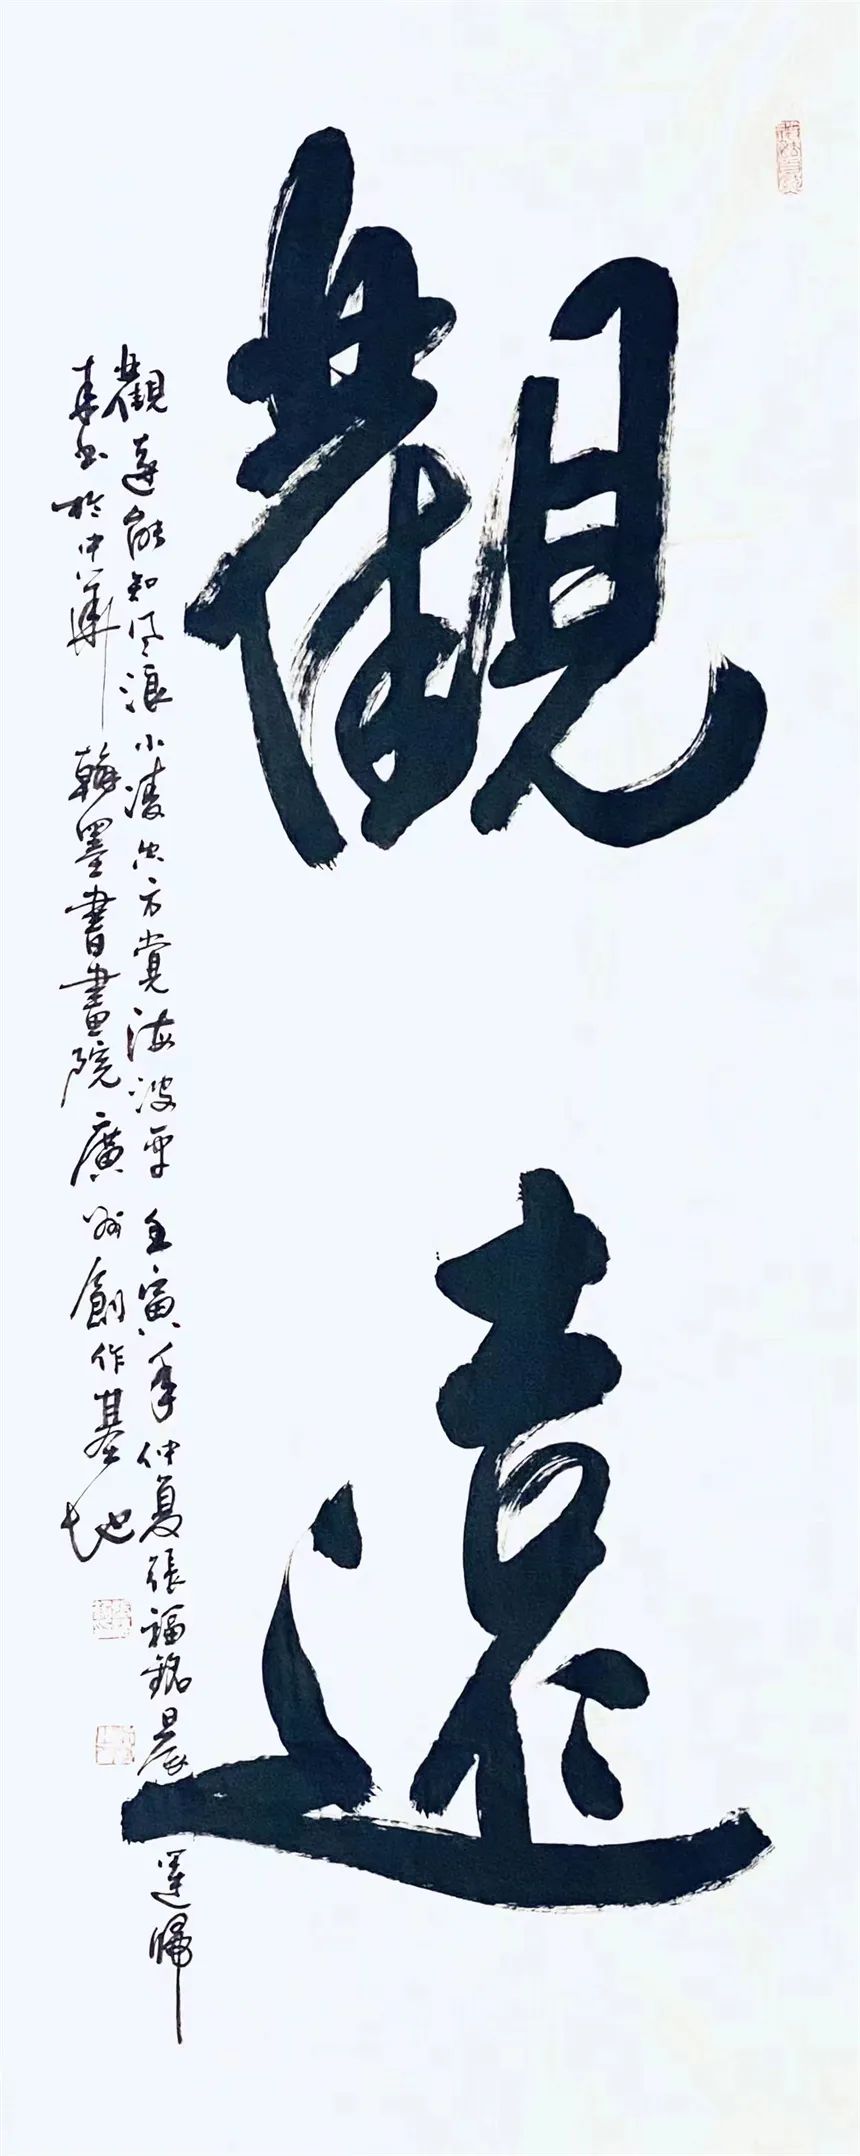 觀遠
觀遠能知風浪小凌空方覺海波平壬寅年仲夏張福銘晨運歸
來書於中華翰墨書畫院廣州創作基地